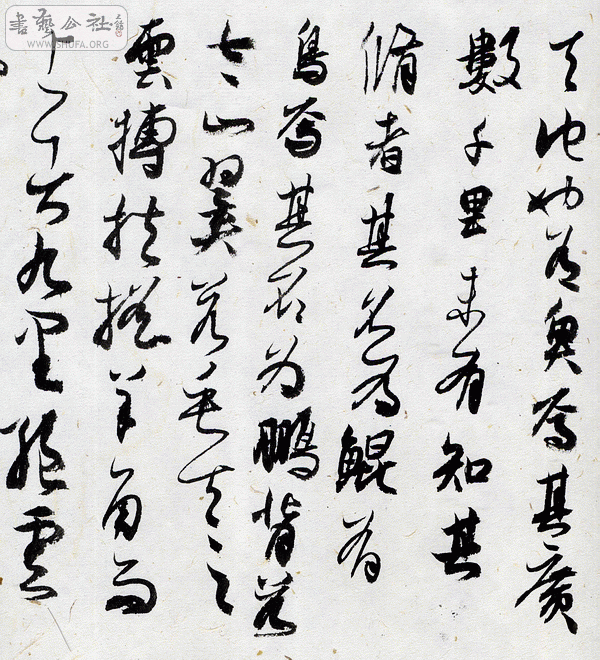 書藝公社
WWW.SHUFA.ORG
天池也有魚焉其廣
數千里未有知其
脩者其名為鯤有
鳥焉其名為鵬背若
山翼若垂天之
雲摶扶搖羊角而
上九里絕雲